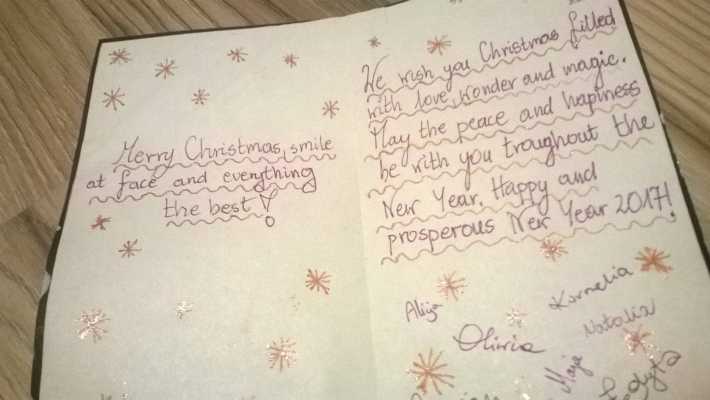 Merry Christmas, smile
at face and everything
the best!
We wish you Christmas filled
with love, wonder and magic.
May the peace and happiness
be with you troughout the
New Year. Happy and
prosperous New Year 2017!
Kornelia
Alicja
Natalia
Oliwia
Maja
Edyta